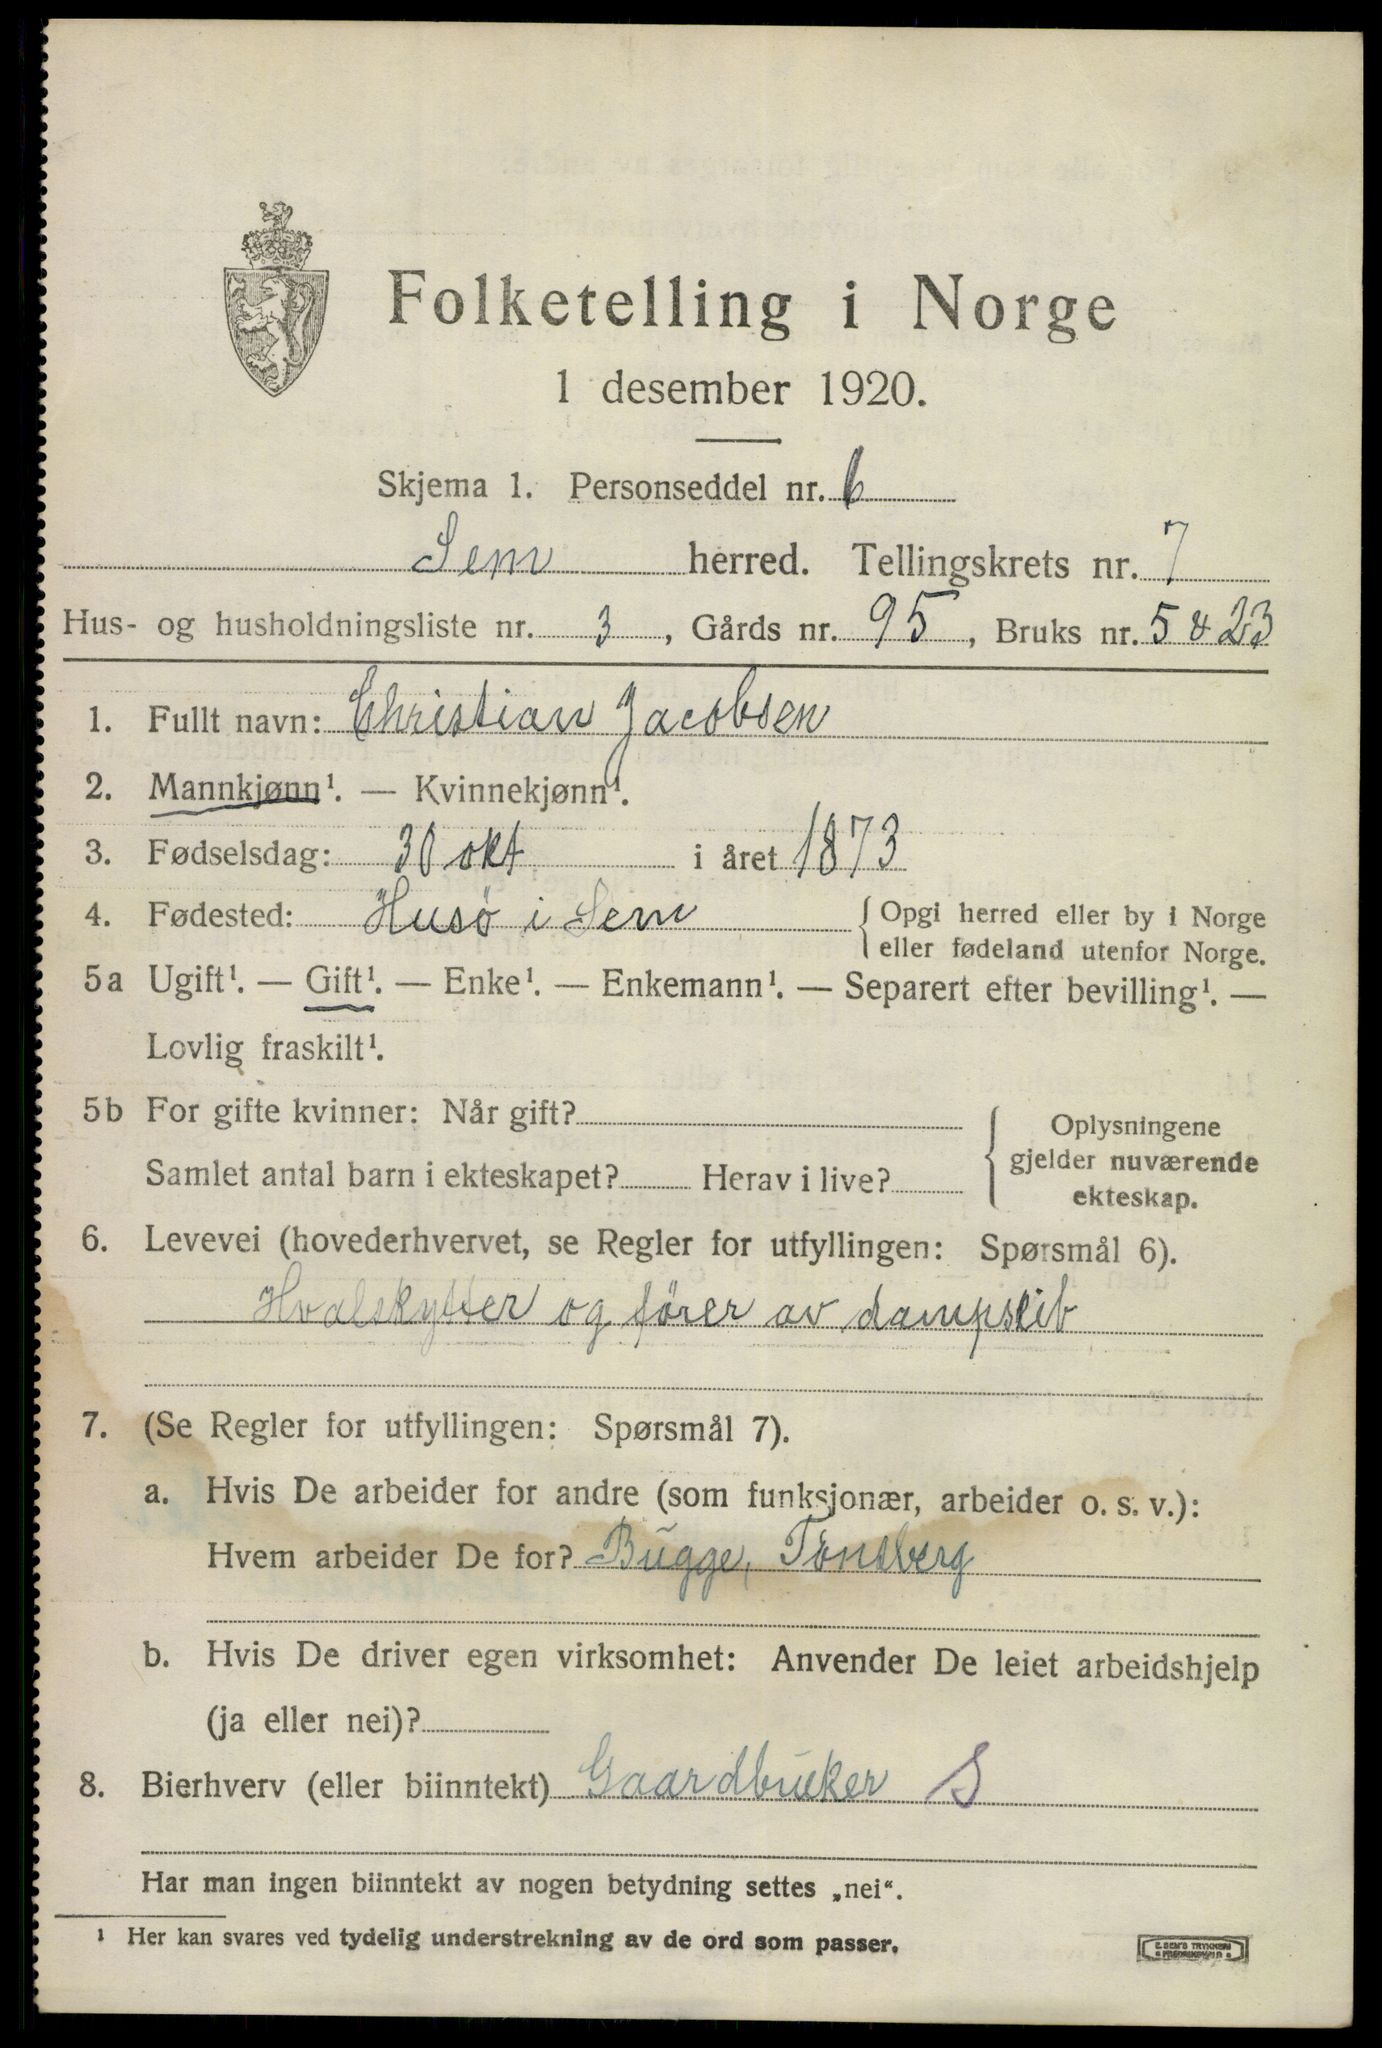 Folketelling i Norge
1 desember 1920.
Skjema 1. Personseddel nr. 6
Sem herred. Tellingskrets nr. 7
Hus- og husholdningsliste nr. 3, Gårds nr. 95, Bruks nr. 5 & 23
1. Fullt navn: Christian Jacobsen
2. Mannkjønn¹. — Kvinnekjønn¹.
3. Fødselsdag: 30 okt i året 1873
4. Fødested: Husö i Sem { Opgi herred eller by i Norge
eller fødeland utenfor Norge.
5a Ugift¹. — Gift¹. — Enke¹. — Enkemann¹. — Separert efter bevilling¹. —
Lovlig fraskilt¹.
5b For gifte kvinner: Når gift? { Oplysningene
gjelder nuværende
Samlet antal barn i ekteskapet? Herav i live? ekteskap.
6. Levevei (hovederhvervet, se Regler for utfyllingen: Spørsmål 6).
Hvalskytter og förer av dampskib
7. (Se Regler for utfyllingen: Spørsmål 7).
a. Hvis De arbeider for andre (som funksjonær, arbeider o. s. v.):
Hvem arbeider De for? Bugge, Tönsberg
b. Hvis De driver egen virksomhet: Anvender De leiet arbeidshjelp
(ja eller nei)?
8. Bierhverv (eller biinntekt) Gaardbruker S
Har man ingen biinntekt av nogen betydning settes „nei“.
¹ Her kan svares ved tydelig understrekning av de ord som passer.
E. SEM'S TRYKKERI
FREDRIKSHALD